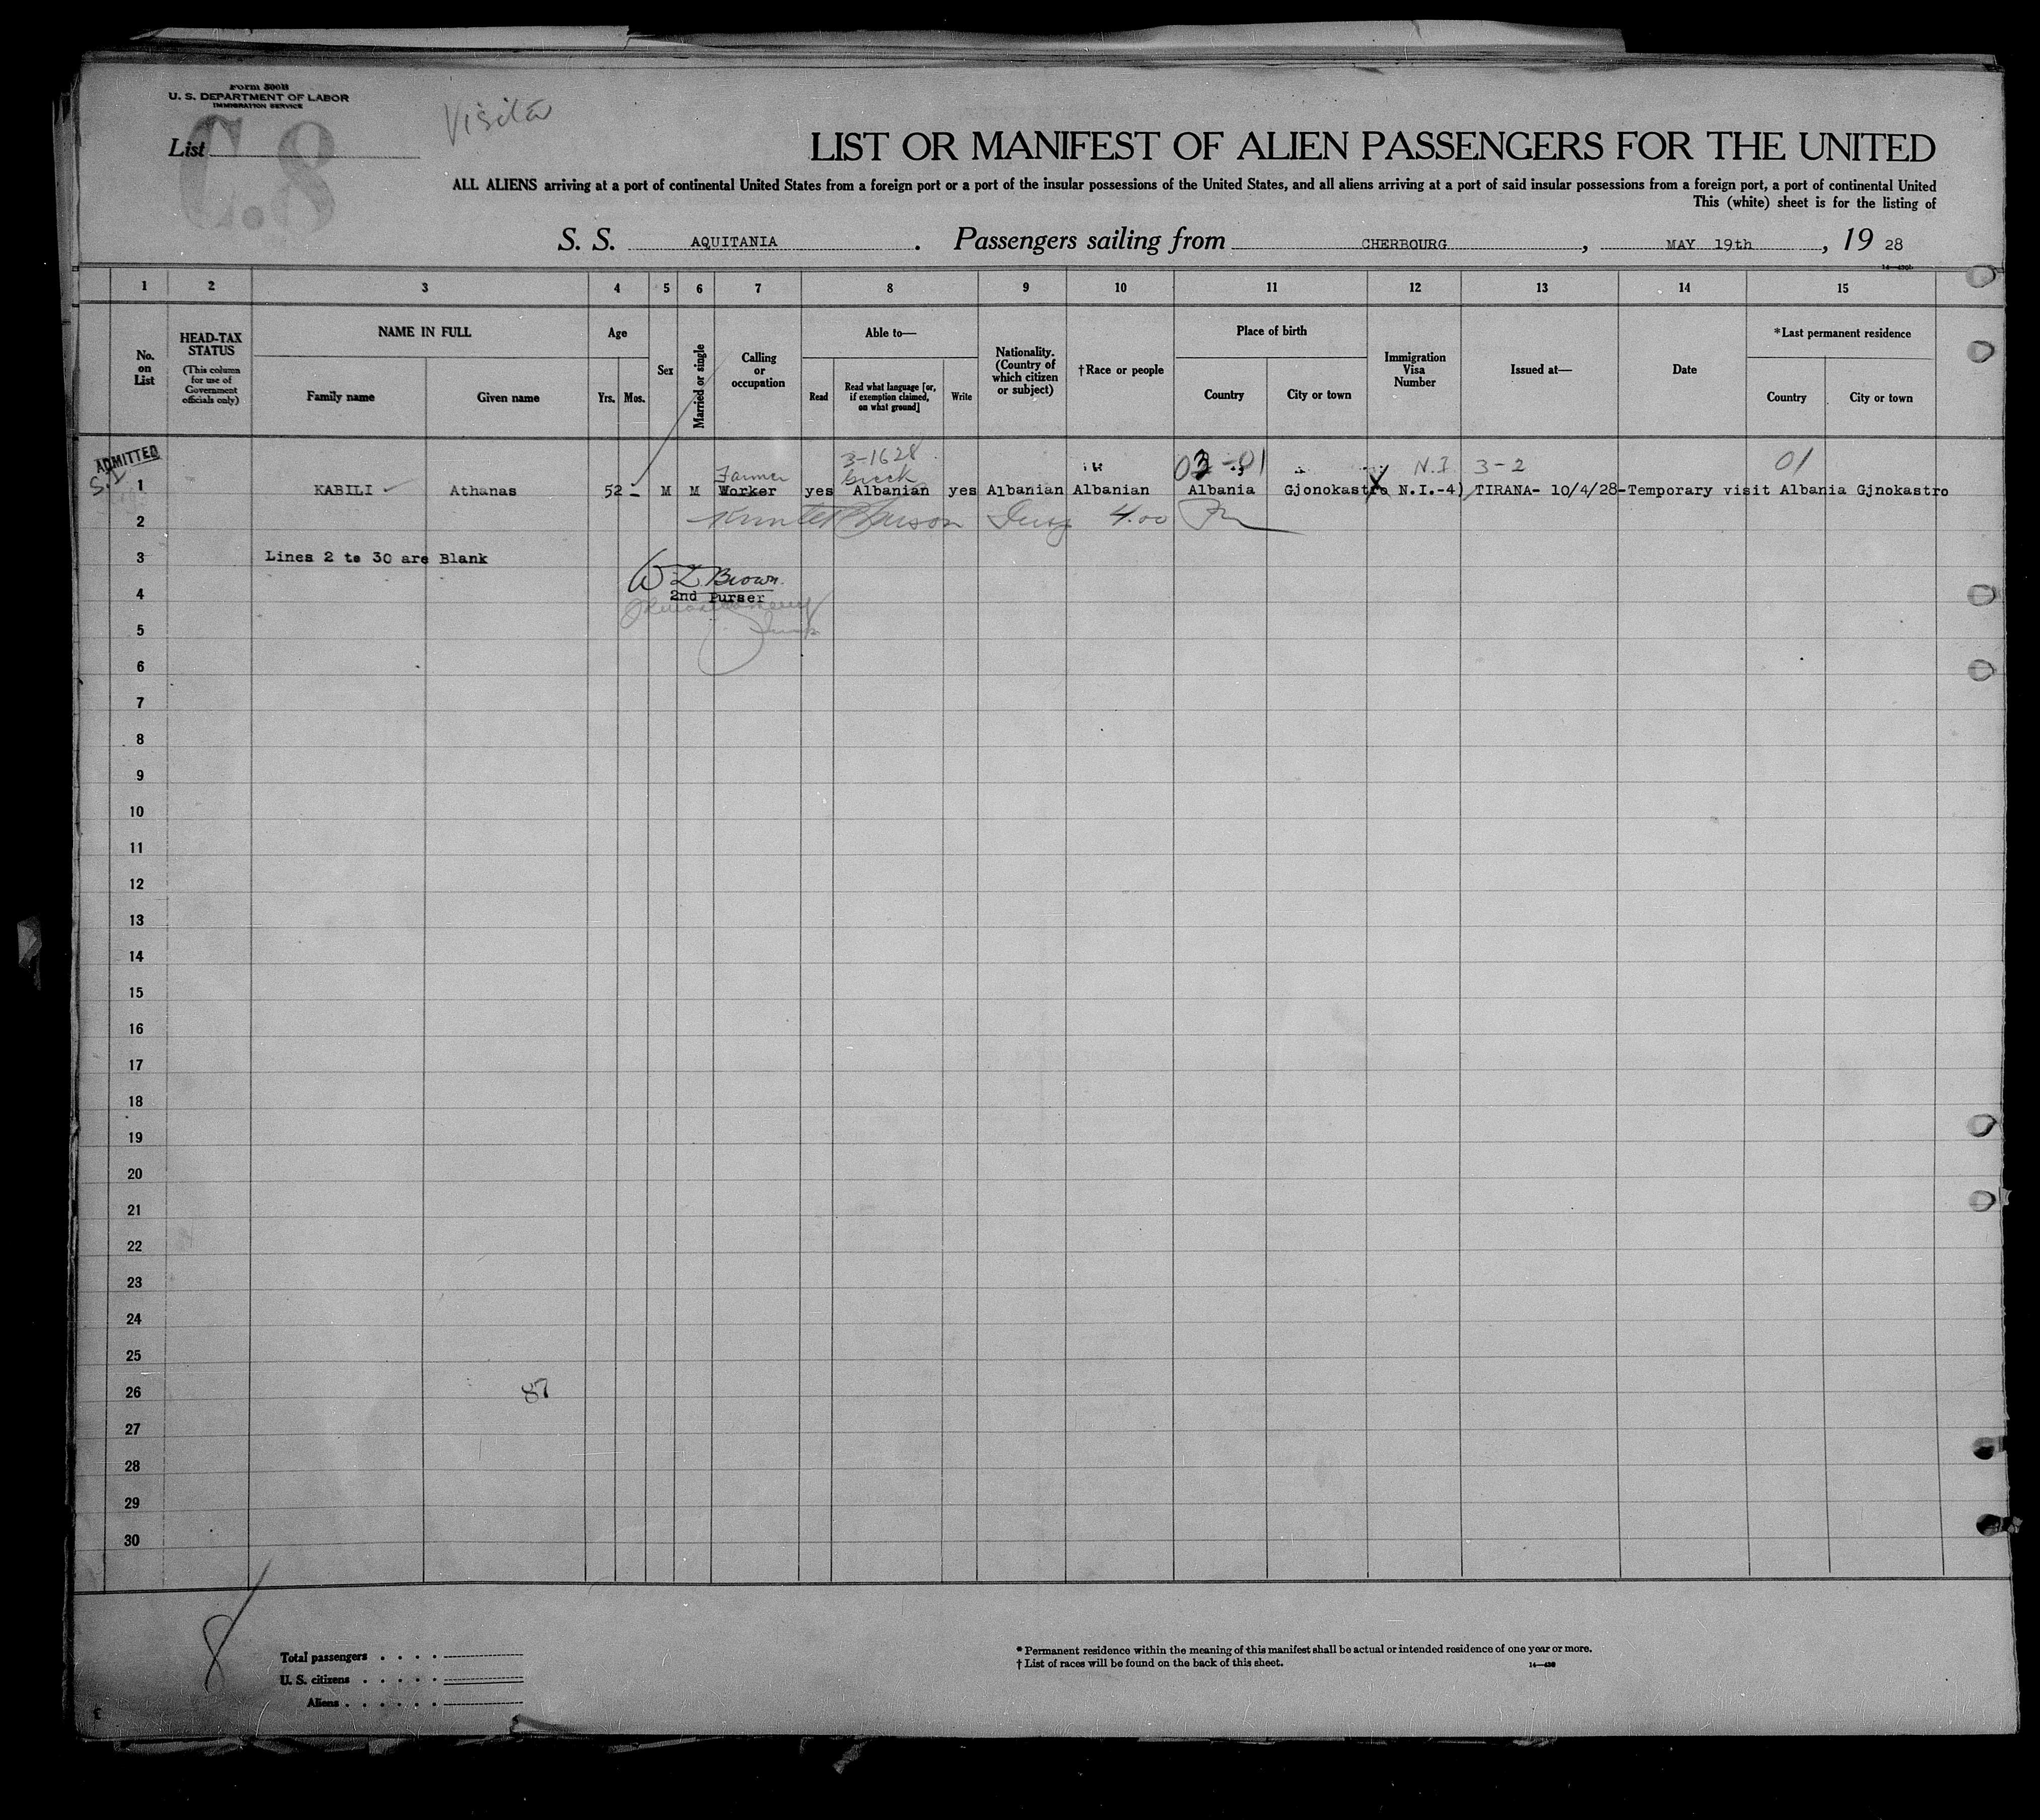 Form 500B
U. S. DEPARTMENT OF LABOR
IMMIGRATION SERVICE
List
C.8
LIST OR MANIFEST OF ALIEN PASSENGERS FOR THE UNITED
ALL ALIENS arriving at a port of continental United States from a foreign port or a port of the insular possessions of the United States, and all aliens arriving at a port of said insular possessions from a foreign port, a port of continental United
This (white) sheet is for the listing of
S. S. AQUITANIA . Passengers sailing from CHERBOURG , MAY 19th , 19 28
1 2 3 4 5 6 7 8 9 10 11 12 13 14 15
No. on List
HEAD-TAX STATUS
(This column for use of Government officials only)
NAME IN FULL
Family name
Given name
Age
Yrs.
Mos.
Sex
Married or single
Calling or occupation
Able to—
Read
Read what language [or, if exemption claimed, on what ground]
Write
Nationality. (Country of which citizen or subject)
†Race or people
Place of birth
Country
City or town
Immigration Visa Number
Issued at—
Date
*Last permanent residence
Country
City or town
ADMITTED
3-1628
Farmer Greek 03 -01 N.I 3-2 01
1 KABILI Athanas 52 - M M Worker yes Albanian yes Albanian Albanian Albania Gjonokastro X N.I.-4) TIRANA- 10/4/28-Temporary visit Albania Gjnokastro
2 4.00
3 Lines 2 to 30 are Blank
W L Brown
4 2nd Purser
5
6
7
8
9
10
11
12
13
14
15
16
17
18
19
20
21
22
23
24
25
26 87
27
28
29
30
8
Total passengers . . . .
U. S. citizens . . . . .
Aliens . . . . . .
* Permanent residence within the meaning of this manifest shall be actual or intended residence of one year or more.
† List of races will be found on the back of this sheet.